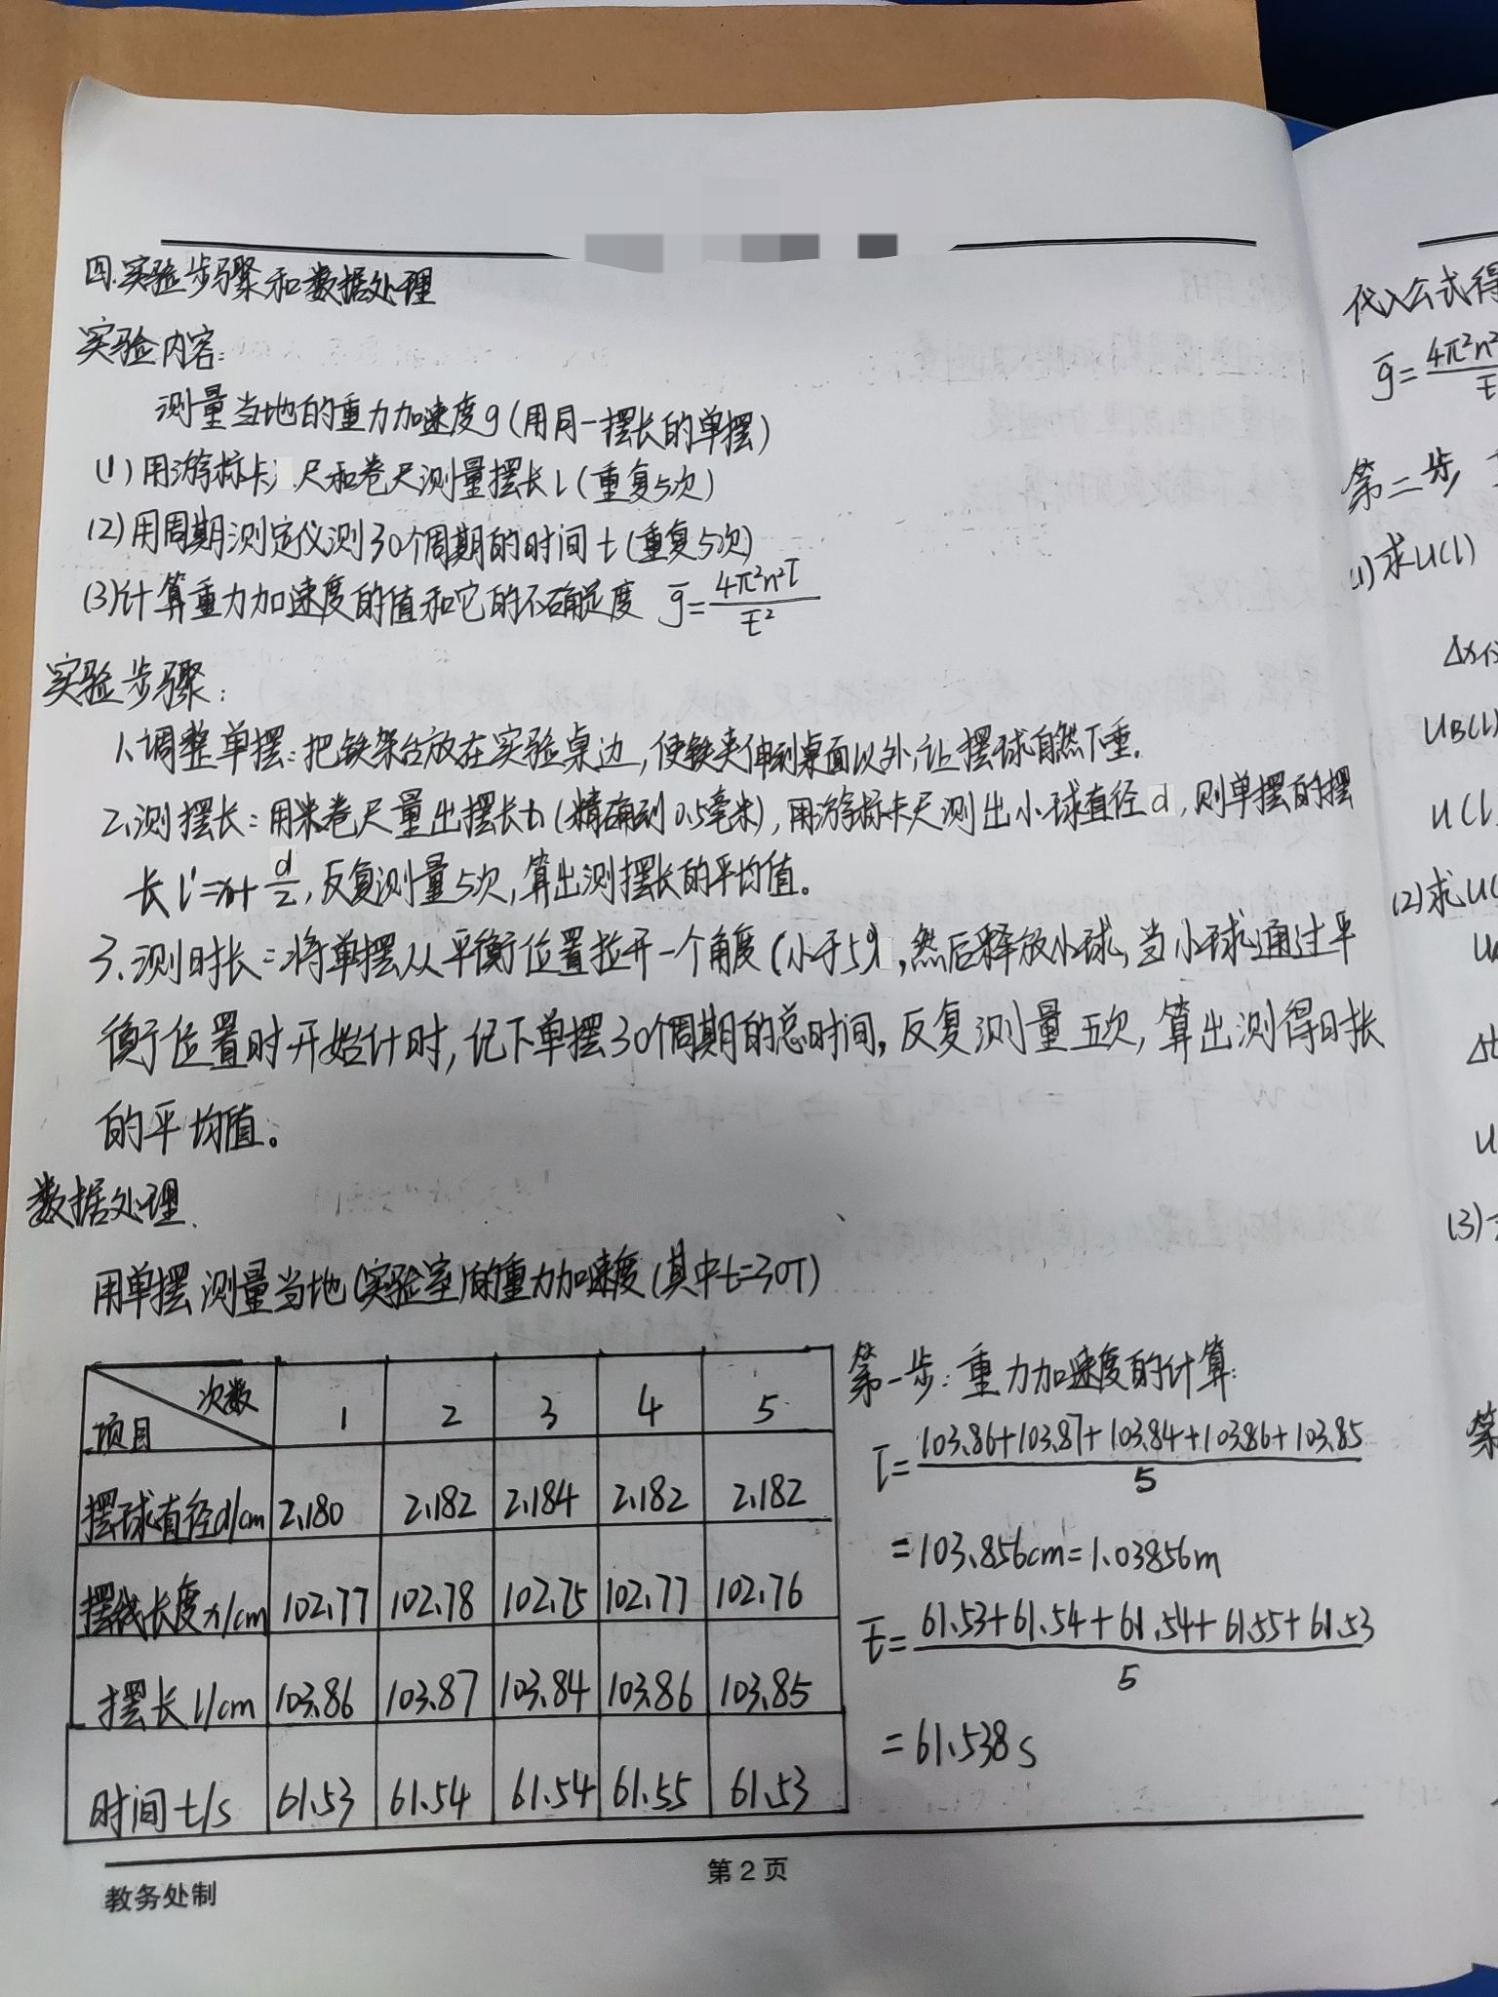 四.实验步骤和数据处理
实验内容:
测量当地的重力加速度g(用同一摆长的单摆)
(1)用游标卡尺和卷尺测量摆长l(重复5次)
(2)用周期测定仪测30个周期的时间t(重复5次)
(3)计算重力加速度的值和它的不确定度 g̅=4π²n²l̅/t̅²
实验步骤:
1.调整单摆:把铁架台放在实验桌边,使铁夹伸到桌面以外,让摆球自然下垂.
2.测摆长:用米卷尺量出摆长(精确到0.5毫米),用游标卡尺测出小球直径d,则单摆的摆
长l'=x+d/2,反复测量5次,算出测摆长的平均值。
3.测时长:将单摆从平衡位置拉开一个角度(小于5°),然后释放小球,当小球通过平
衡位置时开始计时,记下单摆30个周期的总时间,反复测量五次,算出测得时长
的平均值。
数据处理.
用单摆测量当地(实验室)的重力加速度(其中t=30T)
项目 次数 1 2 3 4 5
摆球直径d/cm 2.180 2.182 2.184 2.182 2.182
摆线长度x/cm 102.77 102.78 102.75 102.77 102.76
摆长l/cm 103.86 103.87 103.84 103.86 103.85
时间t/s 61.53 61.54 61.54 61.55 61.53
第一步:重力加速度的计算:
l̅=(103.86+103.87+103.84+103.86+103.85)/5
=103.856cm=1.03856m
t̅=(61.53+61.54+61.54+61.55+61.53)/5
=61.538s
教务处制
第2页
代入公式得
g̅=4π²n²
第二步
(1)求u(l)
uB(l)
u(l
(2)求u(
Δt
u
(3)
第